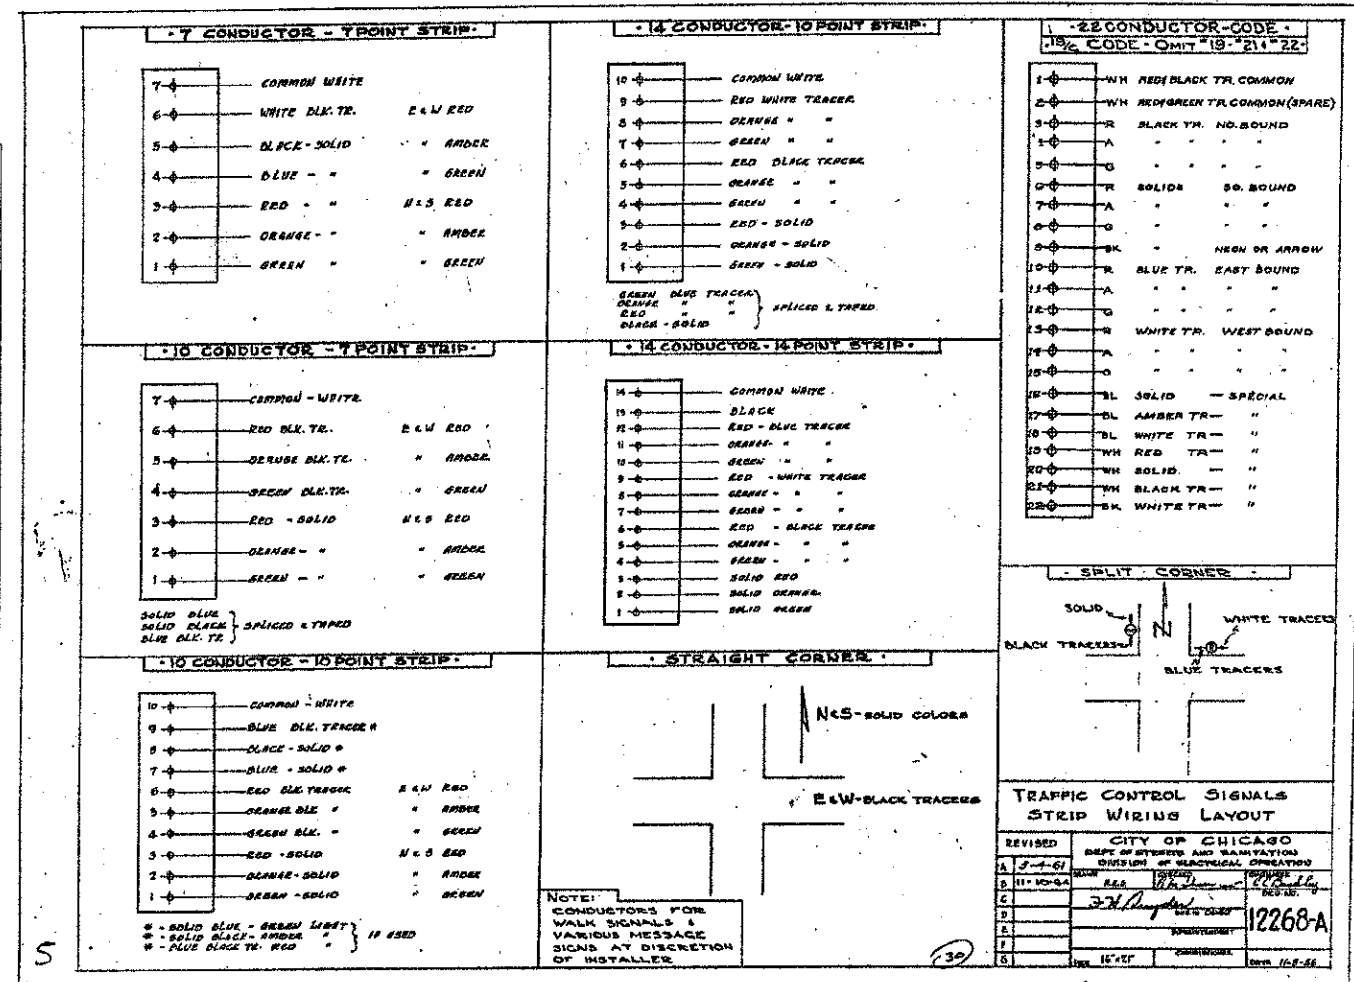 · 7 CONDUCTOR - 7 POINT STRIP ·
7 COMMON WHITE
6 WHITE BLK. TR. E & W RED
5 BLACK - SOLID " " AMBER
4 BLUE - " " GREEN
3 RED - " N & S RED
2 ORANGE - " " AMBER
1 GREEN " " GREEN
· 10 CONDUCTOR - 7 POINT STRIP ·
7 COMMON - WHITE
6 RED BLK. TR. E & W RED
5 ORANGE BLK. TR. " AMBER
4 GREEN BLK. TR. " GREEN
3 RED - SOLID N & S RED
2 ORANGE - " " AMBER
1 GREEN - " " GREEN
SOLID BLUE
SOLID BLACK
BLUE BLK. TR.
SPLICED & TAPED
· 10 CONDUCTOR - 10 POINT STRIP ·
10 COMMON - WHITE
9 BLUE BLK. TRACER *
8 BLACK - SOLID *
7 BLUE - SOLID *
6 RED BLK TRACER E & W RED
5 ORANGE BLK " " AMBER
4 GREEN BLK. " " GREEN
3 RED - SOLID N & S RED
2 ORANGE - SOLID " AMBER
1 GREEN - SOLID " GREEN
* - SOLID BLUE - GREEN LEFT
* - SOLID BLACK - AMBER "
* - BLUE BLACK TR. RED "
IF USED
S
· 14 CONDUCTOR - 10 POINT STRIP ·
10 COMMON WHITE
9 RED WHITE TRACER
8 ORANGE " "
7 GREEN " "
6 RED BLACK TRACER
5 ORANGE " "
4 GREEN " "
3 RED - SOLID
2 ORANGE - SOLID
1 GREEN - SOLID
GREEN BLUE TRACER
ORANGE " "
RED " "
BLACK - SOLID
SPLICED & TAPED
· 14 CONDUCTOR - 14 POINT STRIP ·
14 COMMON WHITE
13 BLACK
12 RED - BLUE TRACER
11 ORANGE - " "
10 GREEN " "
9 RED - WHITE TRACER
8 ORANGE - " "
7 GREEN - " "
6 RED - BLACK TRACER
5 ORANGE - " "
4 GREEN - " "
3 SOLID RED
2 SOLID ORANGE
1 SOLID GREEN
· STRAIGHT CORNER ·
N & S - SOLID COLORS
E & W - BLACK TRACERS
NOTE:
CONDUCTORS FOR
WALK SIGNALS &
VARIOUS MESSAGE
SIGNS AT DISCRETION
OF INSTALLER
30
· 22 CONDUCTOR - CODE ·
· 19/C CODE - OMIT #19 - #21 & #22 ·
1 WH RED/BLACK TR. COMMON
2 WH RED/GREEN TR. COMMON (SPARE)
3 R BLACK TR. NO. BOUND
4 A " " " "
5 G " " " "
6 R SOLIDS SO. BOUND
7 A " " "
8 G " " "
9 BK " NEON OR ARROW
10 R BLUE TR. EAST BOUND
11 A " " " "
12 G " " " "
13 R WHITE TR. WEST BOUND
14 A " " " "
15 G " " " "
16 BL SOLID - SPECIAL
17 BL AMBER TR - "
18 BL WHITE TR - "
19 WH RED TR - "
20 WH SOLID - "
21 WH BLACK TR - "
22 BK WHITE TR - "
· SPLIT CORNER ·
SOLID
N
WHITE TRACERS
BLACK TRACERS
BLUE TRACERS
TRAFFIC CONTROL SIGNALS
STRIP WIRING LAYOUT
REVISED
A 3-4-61
B
C
D
E
F
G
CITY OF CHICAGO
DEPT OF STREETS AND SANITATION
DIVISION OF ELECTRICAL OPERATION
12268-A
DATE 11-8-56